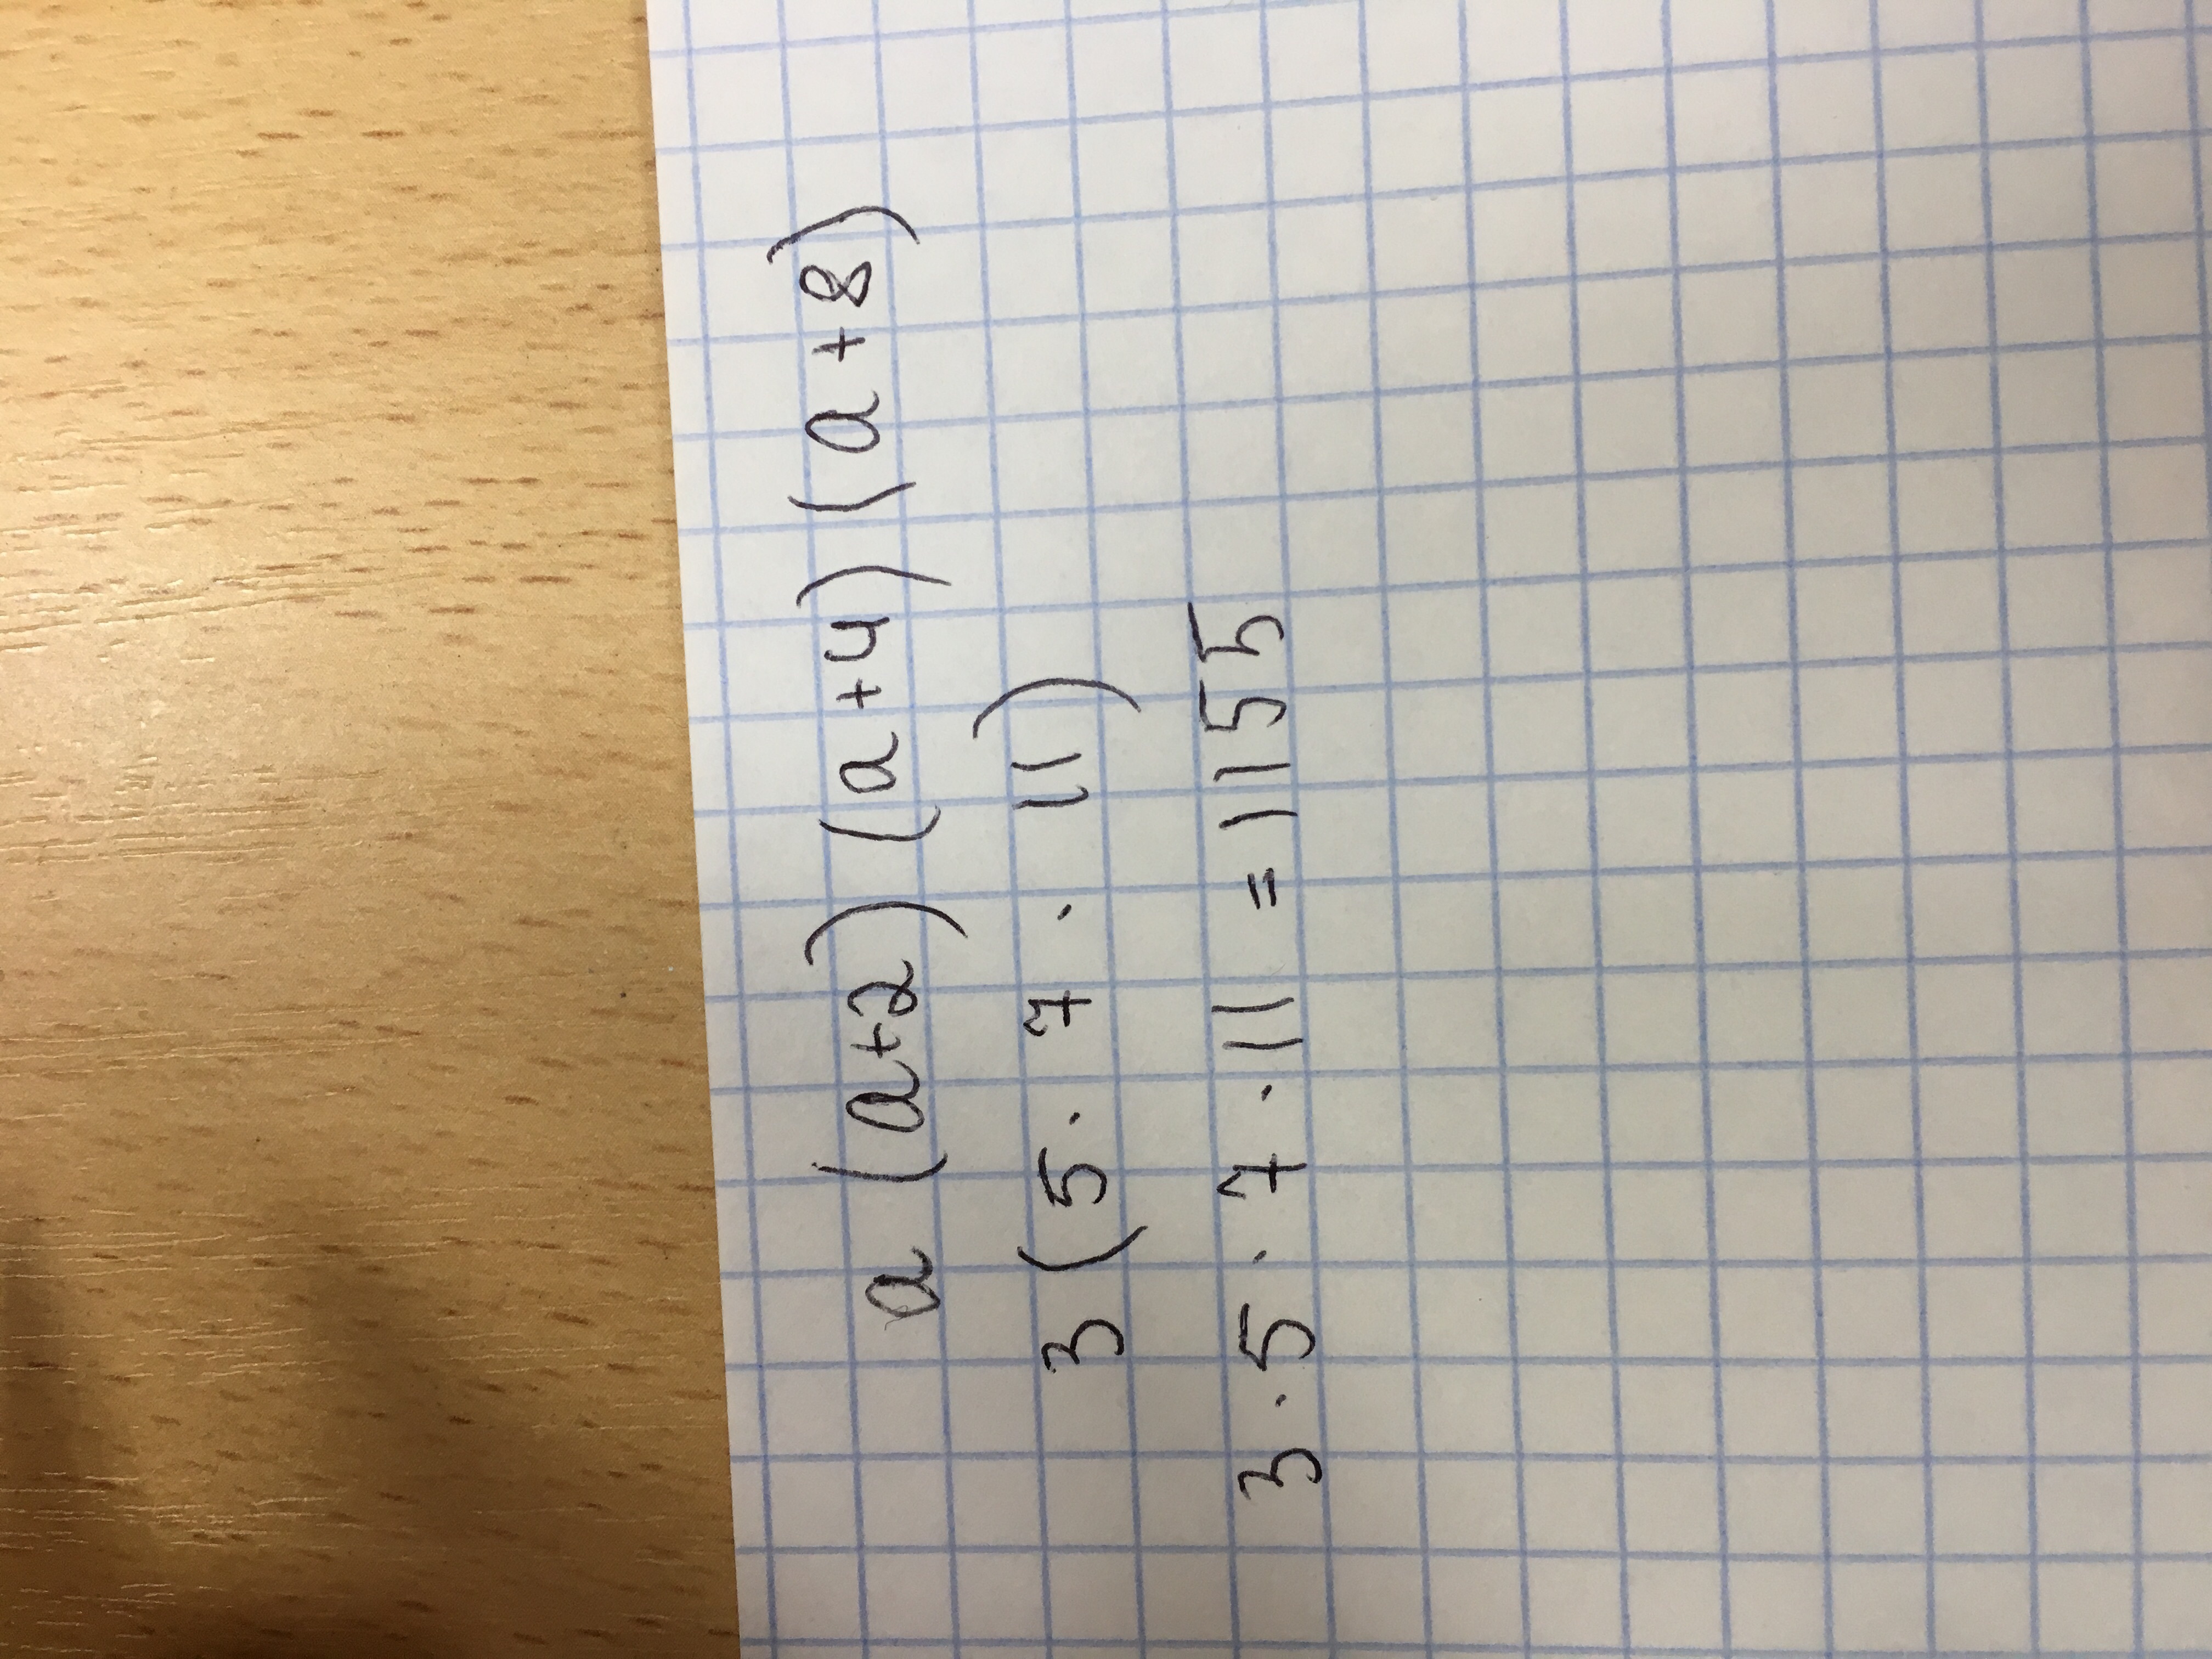 a (a+2) (a+4) (a+8)
3 (5 · 7 · 11)
3 · 5 · 7 · 11 = 1155